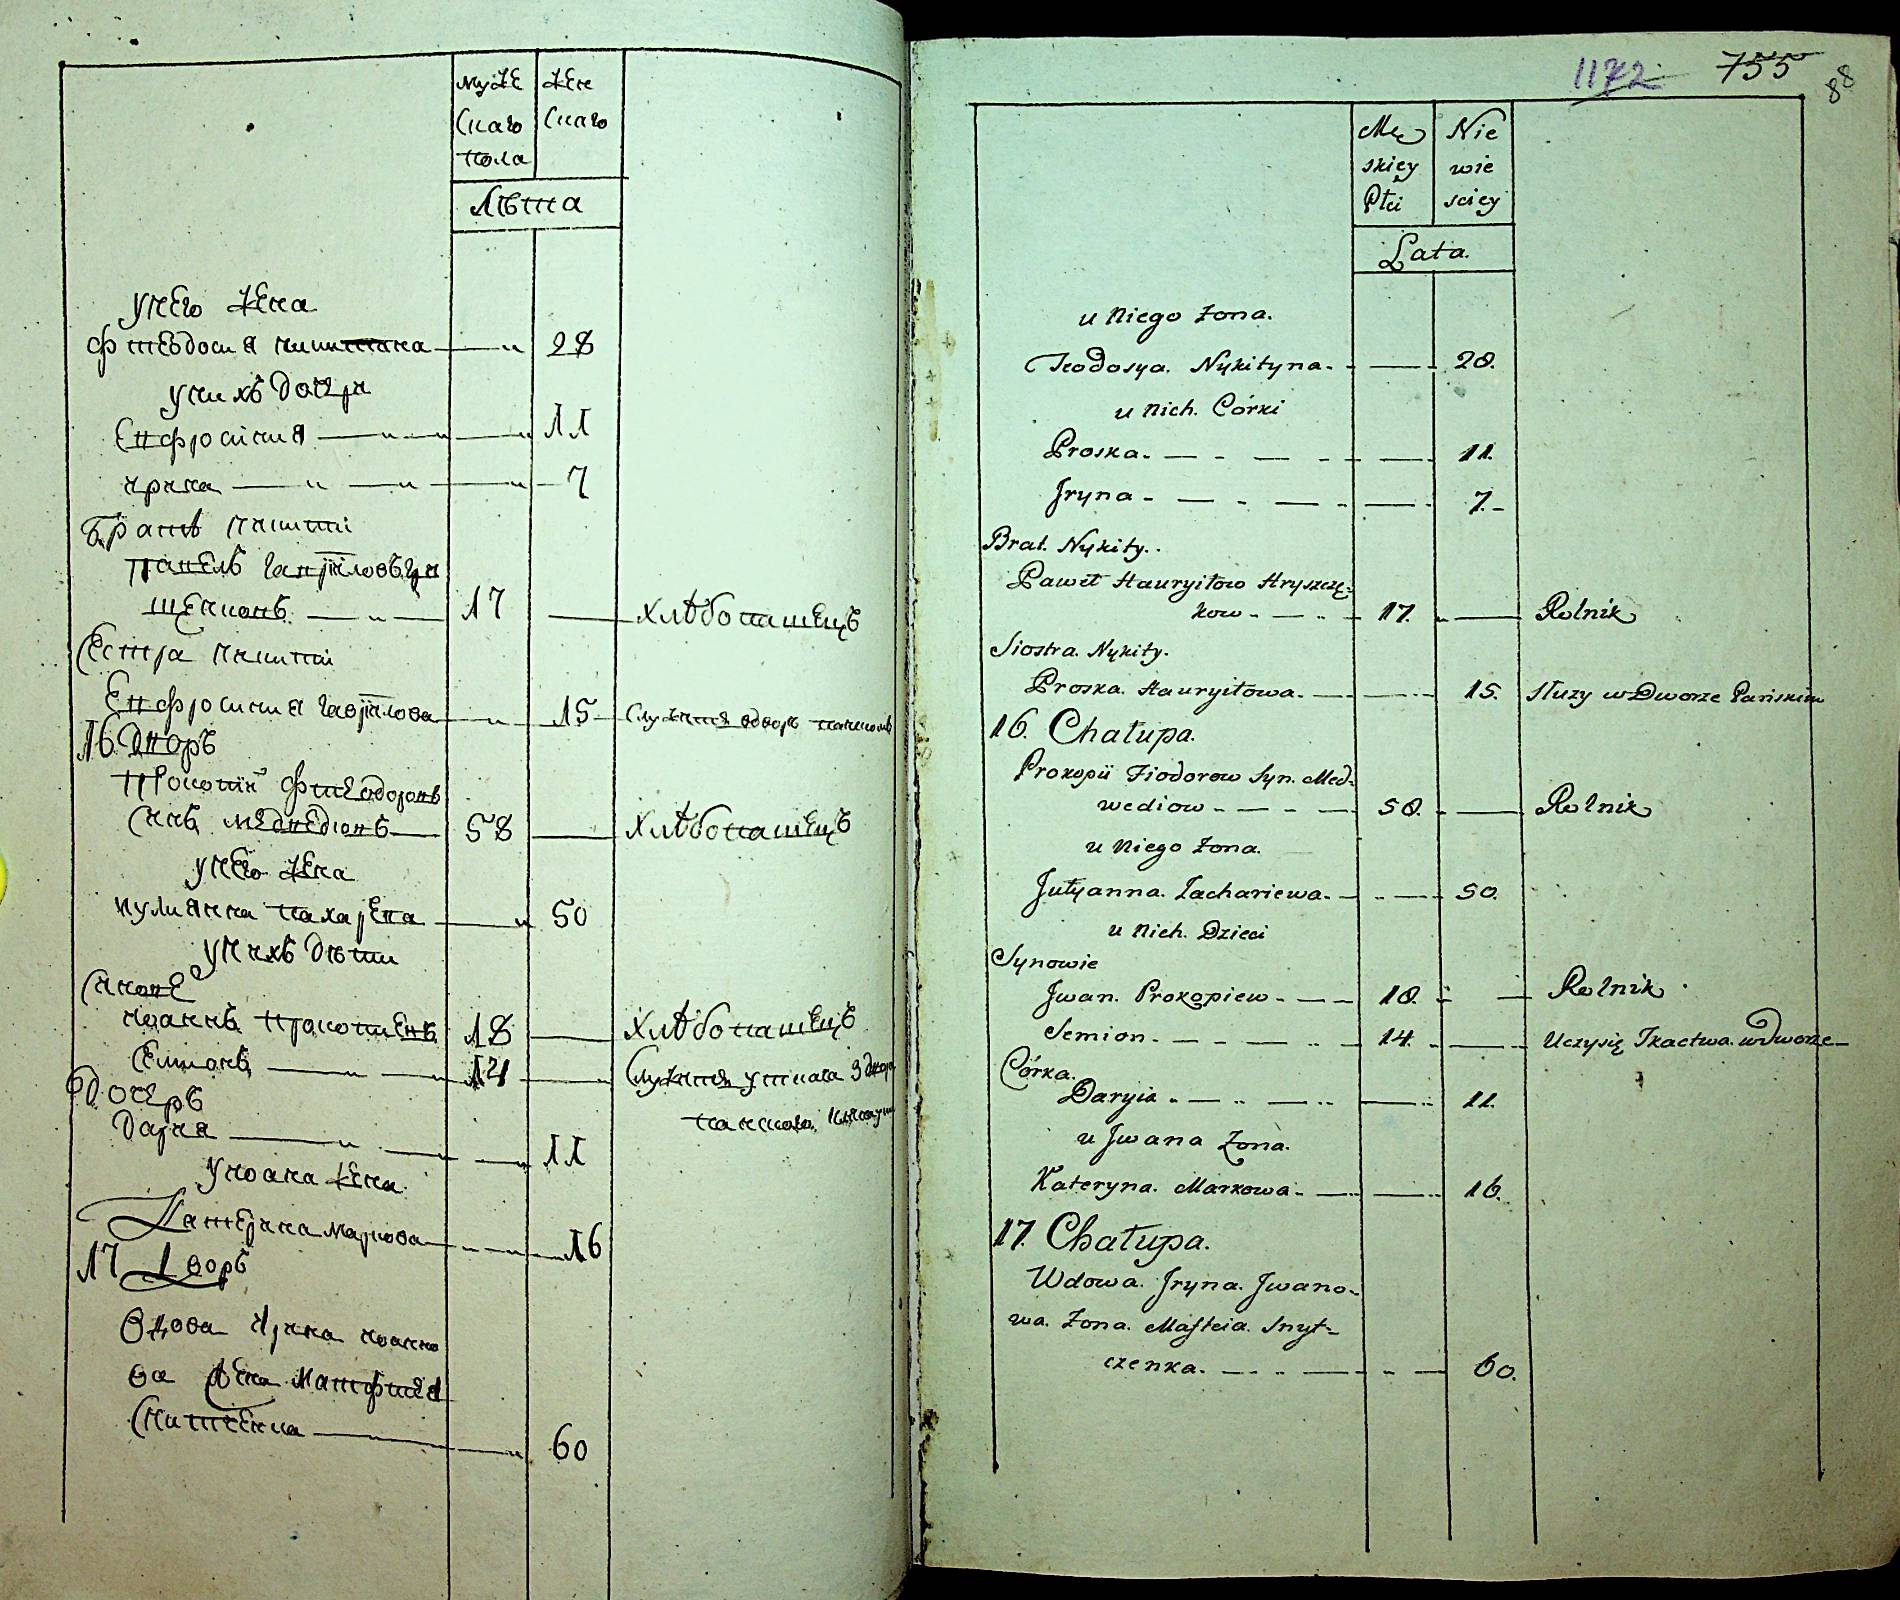 муже
скаго
пола
жен
скаго
Лѣта
унего жена
фтеодосия никитина
28
унихъ дочери
Епфросиния
11
ирина
7
братъ никиты
павелъ гаврїиловъ гри
щенковъ
17
хлѣбопашецъ
Сестра никиты
Епфросиния гаврїилова
15
служитъ вдворѣ панскомъ
16 Дворъ
прокопїй фтеодоровъ
сынъ медведювъ
58
хлѣбопашецъ
унего жена
иулиянна захариева
50
унихъ дѣти
Синове
иоаннъ прокопиевъ
18
хлѣбопашецъ
Симионъ
14
Дочеръ
Дария
11
уиоана жена
Катерина маркова
16
17 Дворъ
Вдова Ирина иоанно
ва жена матфтея
Снитченка
60
1172
755
88
Mę
skiey
Płci
Nie
wie
sciey
Lata.
u Niego Żona.
Teodosya. Nykityna.
28.
u Nich. Córki
Proska.
11.
Jryna
7.
Brat. Nykity.
Paweł Hauryiłow Hryszczę-
kow
17.
Rolnik
Siostra. Nykity.
Proska. Hauryiłowa.
15.
służy w Dworze Pańskim
16. Chałupa.
Prokopii Fiodorow Syn. Med-
wediow
58.
Rolnik
u Niego Żona.
Julyanna. Zachariewa.
50.
u Nich. Dzieci
Synowie
Jwan. Prokopiew
18.
Rolnik
Semion.
14.
Uczysię Tkactwa. w Dworze
Córka.
Daryia
11.
u Jwana Żona.
Kateryna. Markowa.
16.
17. Chałupa.
Wdowa. Jryna. Jwano-
wa. Żona. Matfeia. Snyt-
czenka.
60.